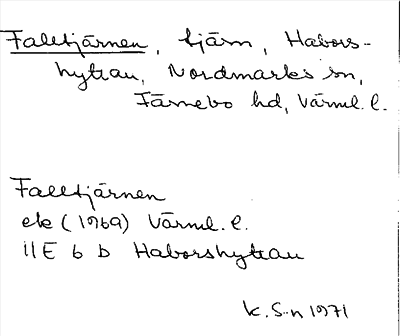 Falltjärnen, tjärn, Habors-
hyttan, Nordmarks sn,
Färnebo hd, Värml. l.
Falltjärnen
ek (1969) Värml. l.
11E 6 b Haborshyttan
K. S-n 1971